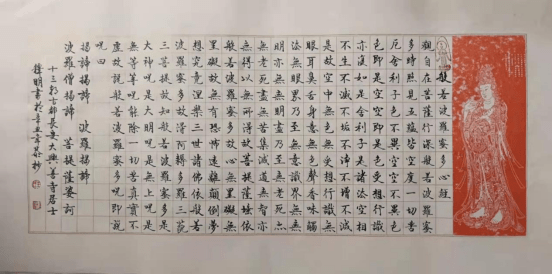 般若波羅蜜多心經
觀自在菩薩行深般若波羅蜜
多時照見五蘊皆空度一切苦
厄舍利子色不異空空不異色
色即是空空即是色受想行識
亦復如是舍利子是諸法空相
不生不滅不垢不淨不增不減
是故空中無色無受想行識無
眼耳鼻舌身意無色聲香味觸
法無眼界乃至無意識界無無
明亦無無明盡乃至無老死亦
無老死盡無苦集滅道無智亦
無得以無所得故菩提薩埵依
般若波羅蜜多故心無罣礙無
罣礙故無有恐怖遠離顛倒夢
想究竟涅槃三世諸佛依般若
波羅蜜多故得阿耨多羅三藐
三菩提故知般若波羅蜜多是
大神呪是大明呪是無上呪是
無等等呪能除一切苦真實不
虛故說般若波羅蜜多呪即說
呪曰
揭諦揭諦 波羅揭諦
波羅僧揭諦 菩提薩婆訶
古都長安大興善寺居士
明書於辛丑年